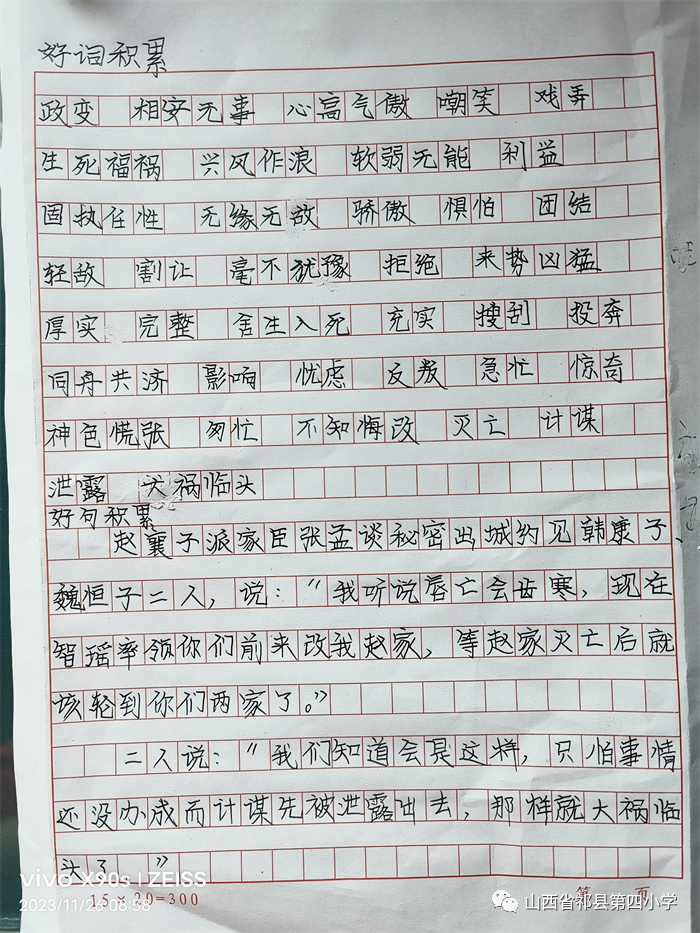 好词积累
政变 相安无事 心高气傲 嘲笑 戏弄
生死福祸 兴风作浪 软弱无能 利益
固执任性 无缘无故 骄傲 惧怕 团结
轻敌 割让 毫不犹豫 拒绝 来势凶猛
厚实 完整 舍生入死 充实 搜刮 投奔
同舟共济 影响 忧虑 反叛 急忙 惊奇
神色慌张 匆忙 不知悔改 灭亡 计谋
泄露 大祸临头
好句积累
赵襄子派家臣张孟谈秘密出城约见韩康子、
魏恒子二人，说：“我听说唇亡会齿寒，现在
智瑶率领你们前来改我赵家，等赵家灭亡后就
该轮到你们两家了。”
二人说：“我们知道会是这样，只怕事情
还没办成而计谋先被泄露出去，那样就大祸临
头了 ”
vivo X90s | ZEISS
2023/11/26 08:38
15×20=300
第 页
山西省祁县第四小学